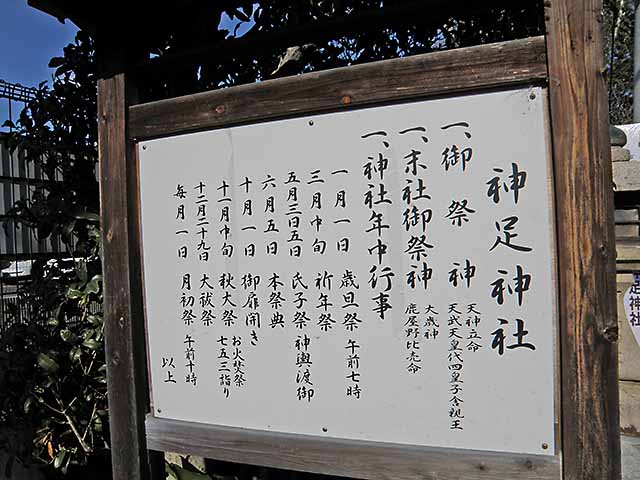 神足神社
一、御祭神 天神立命
天武天皇代四皇子舎親王
一、末社御祭神 大歳神
鹿屋野比売命
一、神社年中行事
一月一日 歳旦祭 午前七時
三月中旬 祈年祭
五月三日五日 氏子祭 神輿渡御
六月五日 本祭典
十月一日 御扉開き
十一月中旬 秋大祭 お火焚祭
七五三詣り
十二月二十九日 大祓祭
毎月一日 月初祭 午前十時
以上
足神社